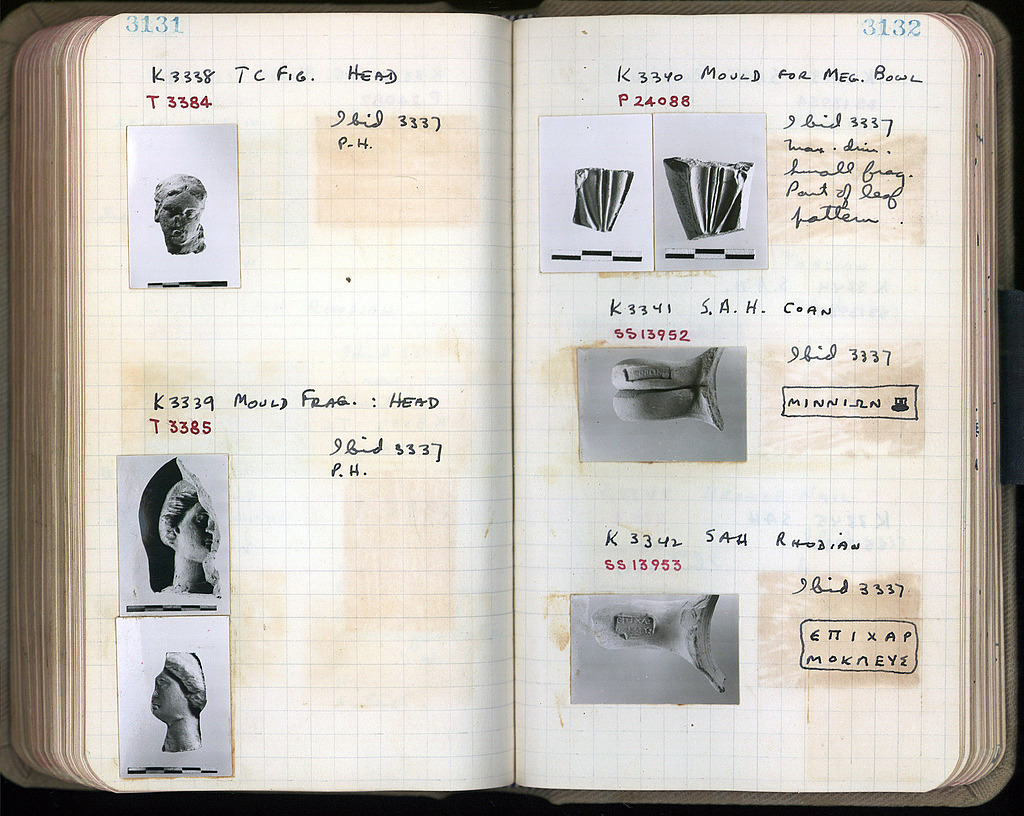 3131
K 3338 TC FIG. HEAD
T 3384
Ibid 3337
P.H.
K3339 MOULD FRAG. : HEAD
T 3385
Ibid 3337
P.H.
3132
K 3340 MOULD FOR MEG. BOWL
P 24088
Ibid 3337
max. dim.
Small frag.
Part of leaf
pattern.
K 3341 S.A.H. COAN
SS 13952
Ibid 3337
ΜΙΝΝΙΩΝ
K 3342 SAH RHODIAN
SS 13953
Ibid 3337
ΕΠΙΧΑΡ
ΜΟΚΛΕΥΣ